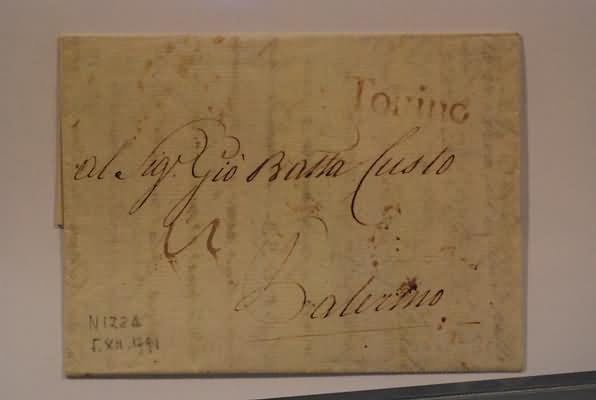 Torino
al Sigr. Giò Batta Custo
Palermo
NIZZA
5.XII.1791